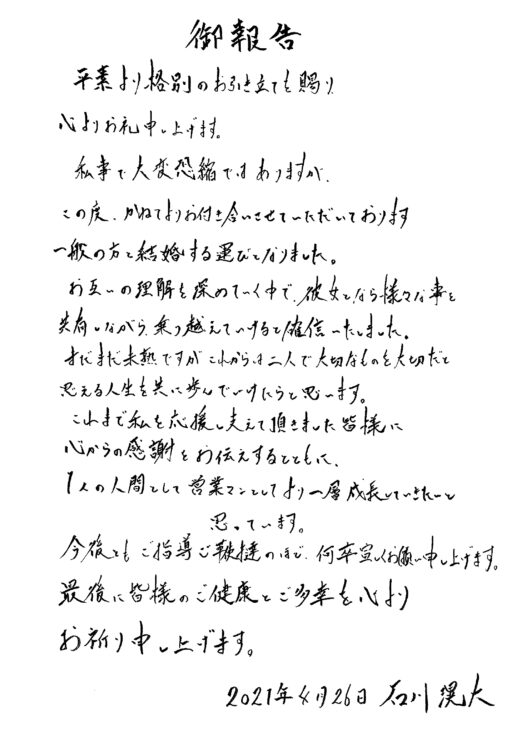 御報告
平素より格別のお引き立てを賜り
心よりお礼申し上げます。
私事で大変恐縮ではありますが、
この度、かねてよりお付き合いさせていただいております
一般の方と結婚する運びとなりました。
お互いの理解を深めていく中で、彼女となら様々な事を
共有しながら、乗り越えていけると確信いたしました。
まだまだ未熟ですがこれからは二人で大切なものを大切だと
思える人生を共に歩んでいけたらと思います。
これまで私を応援し支えて頂きました皆様に
心からの感謝をお伝えするとともに、
1人の人間として営業マンとしてより一層成長していきたいと
思っています。
今後ともご指導ご鞭撻のほど、何卒宜しくお願い申し上げます。
最後に皆様のご健康とご多幸を心より
お祈り申し上げます。
2021年4月26日 石川滉大